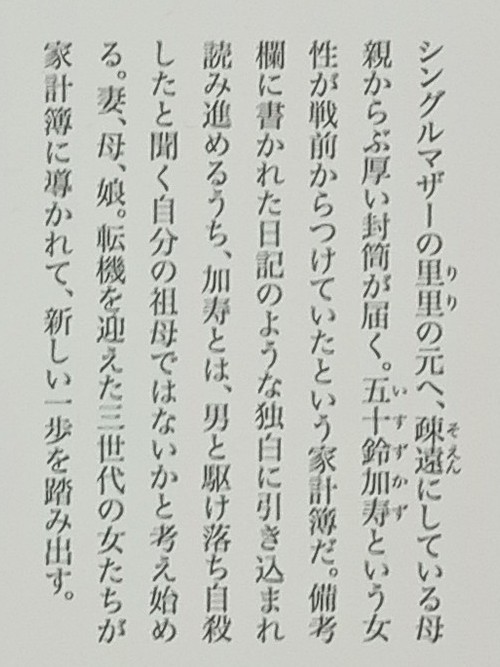 シングルマザーの里里の元へ、疎遠にしている母
親からぶ厚い封筒が届く。五十鈴加寿という女
性が戦前からつけていたという家計簿だ。備考
欄に書かれた日記のような独白に引き込まれ
読み進めるうち、加寿とは、男と駆け落ち自殺
したと聞く自分の祖母ではないかと考え始め
る。妻、母、娘。転機を迎えた三世代の女たちが
家計簿に導かれて、新しい一歩を踏み出す。
りり
そえん
いすずかず